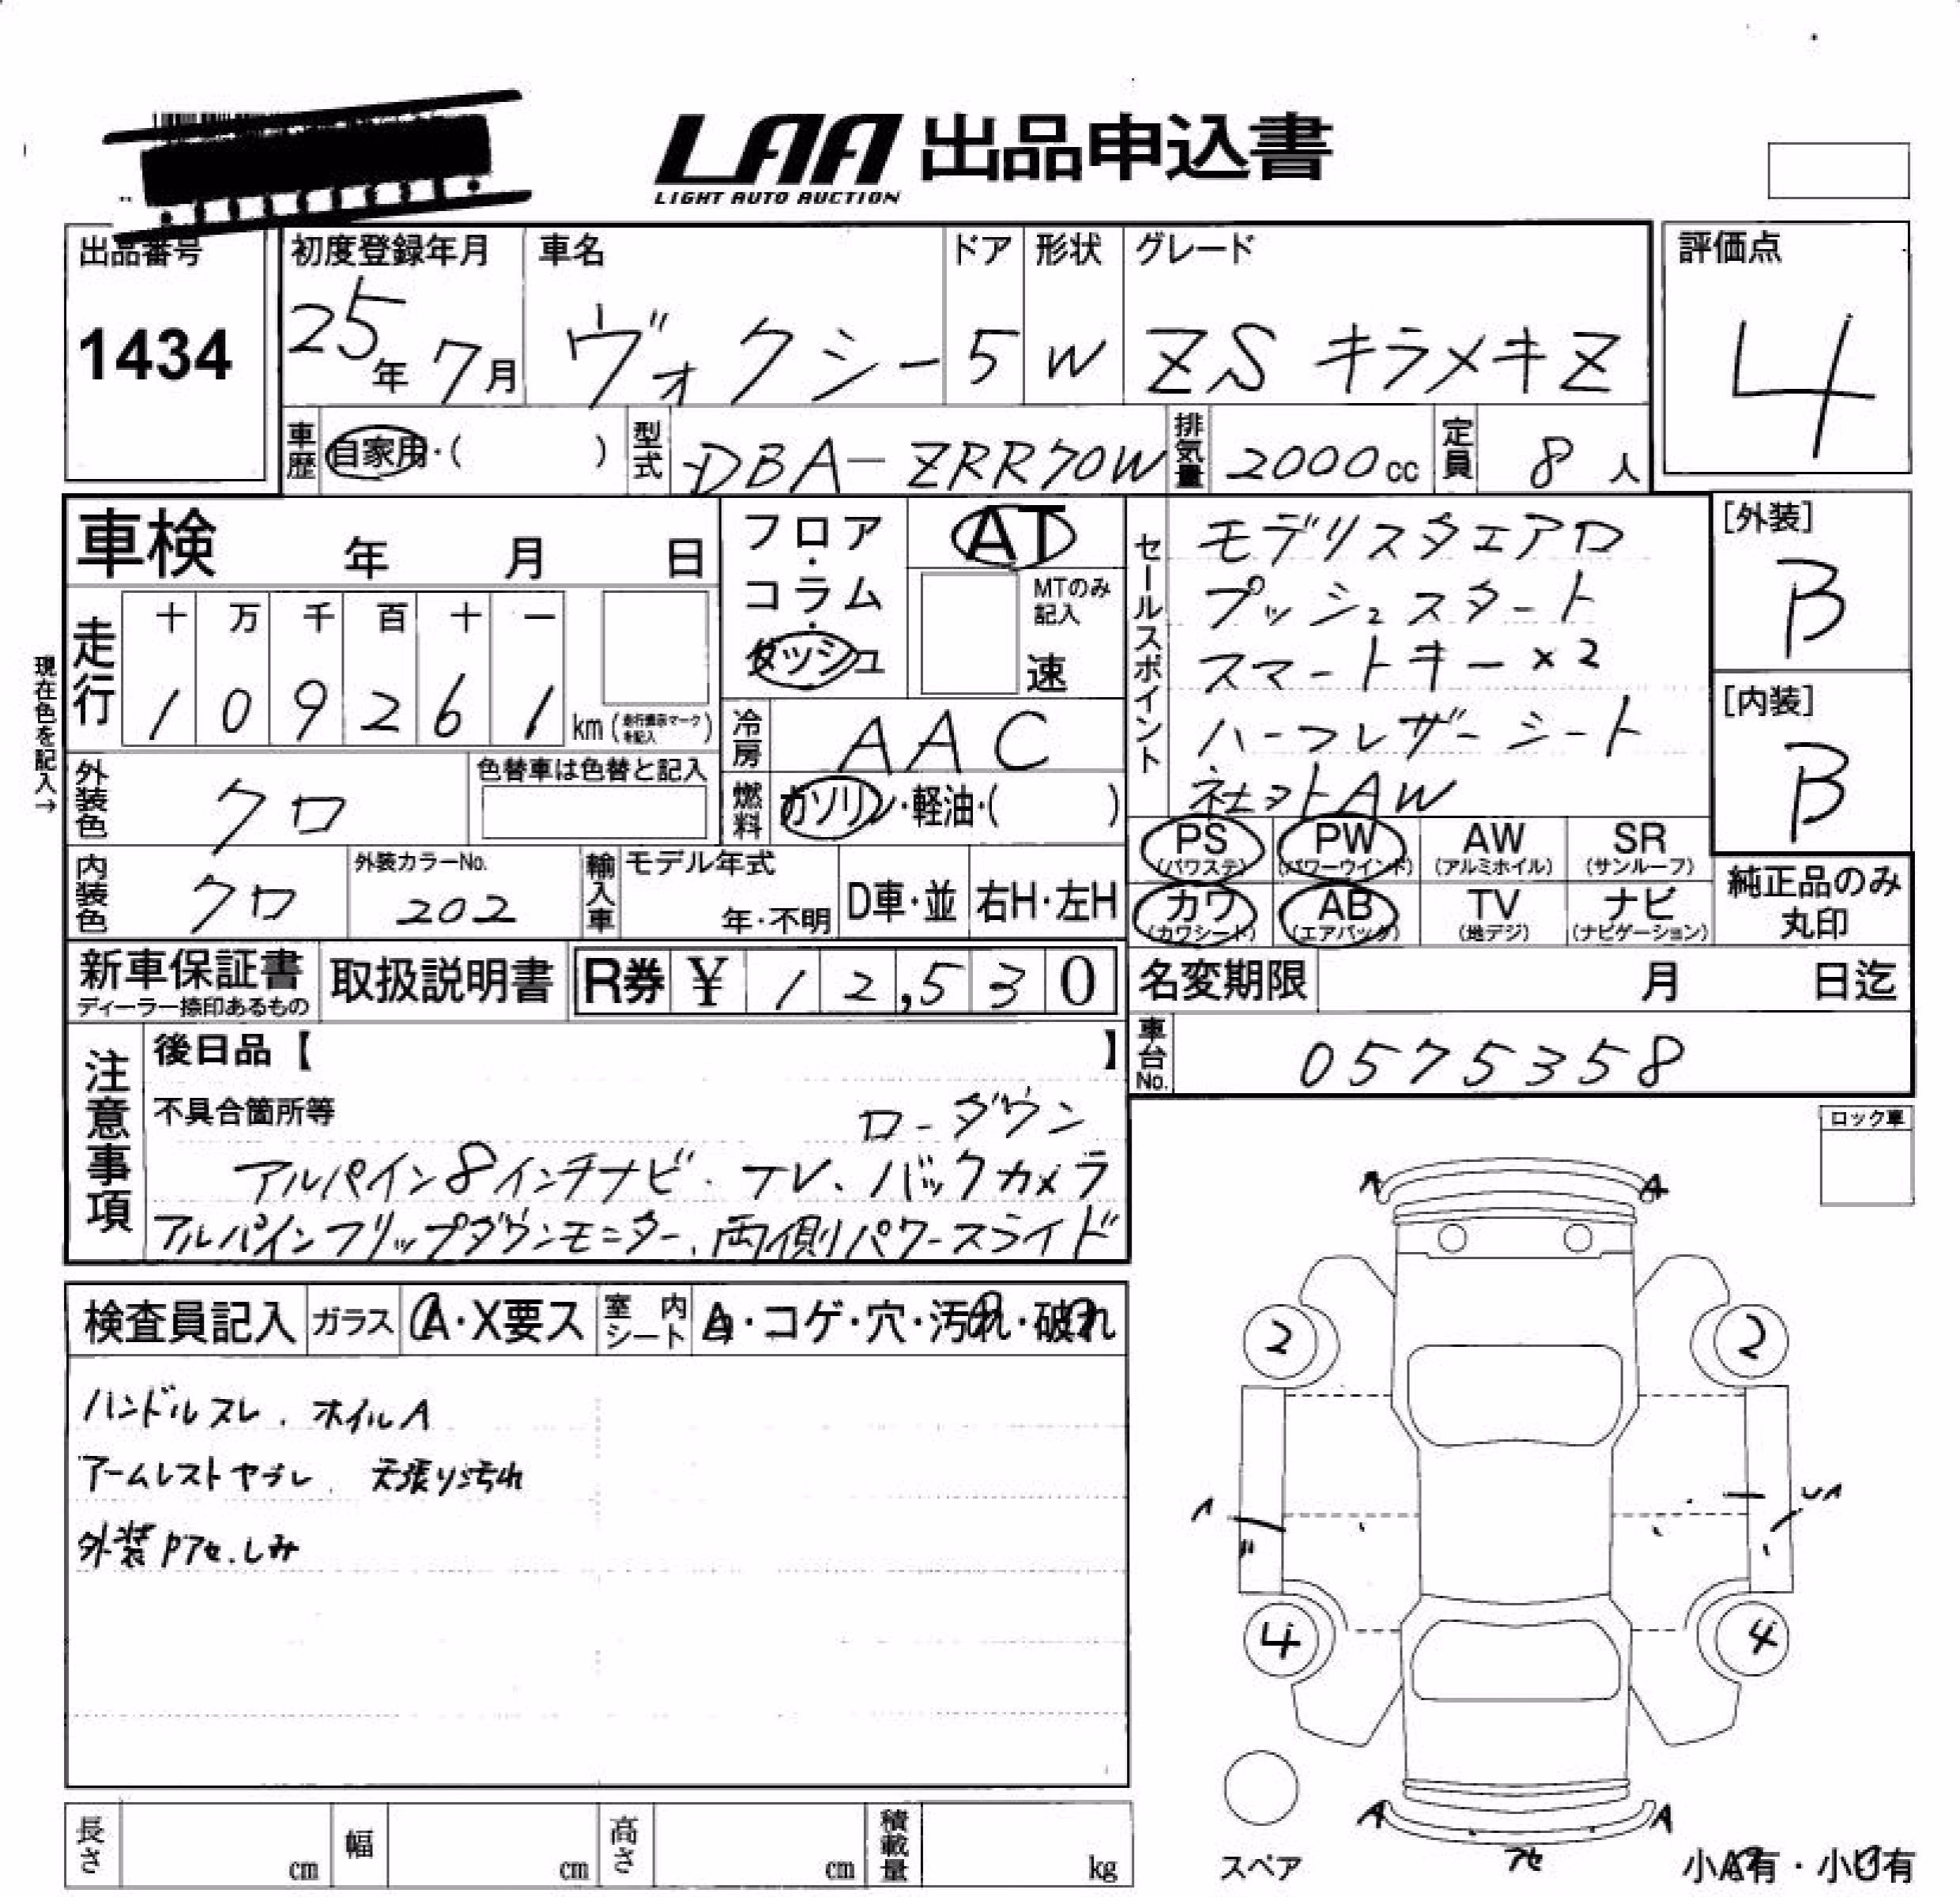 LAA 出品申込書
LIGHT AUTO AUCTION
出品番号 初度登録年月 車名 ドア 形状 グレード 評価点
1434 25年 7月 ヴォクシー 5 W ZS キラメキZ 4
車歴 自家用・( ) 型式 DBA-ZRR70W 排気量 2000cc 定員 8人
車検 年 月 日
フロア・コラム・ダッシュ
AT
MTのみ記入
速
セールスポイント
モデリスタエアロ
プッシュスタート
スマートキー×2
ハーフレザーシート
社外AW
[外装]
B
[内装]
B
現在色を記入→
走行 十 万 千 百 十 一
1 0 9 2 6 1 km
冷房 AAC
外装色 クロ 色替車は色替と記入
燃料 ガソリン・軽油・( )
PS (パワステ) PW (パワーウインド) AW (アルミホイル) SR (サンルーフ)
カワ (カワシート) AB (エアバック) TV (地デジ) ナビ (ナビゲーション)
純正品のみ
丸印
内装色 クロ 外装カラーNo. 202 輸入車 モデル年式 年・不明 D車・並 右H・左H
新車保証書 取扱説明書 R券 ¥ 12,530
ディーラー捺印あるもの
名変期限 月 日迄
車台No. 0575358
注意事項
後日品【 】
不具合箇所等 ローダウン
アルパイン8インチナビ.テレ、バックカメラ
アルパインフリップダウンモニター、両側パワースライド
ロック車
検査員記入 ガラス A・X要ス 室内シート ・コゲ・穴・汚れ・破れ
ハンドルスレ. ホイルA
アームレストヤブレ. 天張り汚れ
外装 しみ
A A
2 2
A
4 4
A A
スペア
アセ
小A有・小U有
長さ cm 幅 cm 高さ cm 積載量 kg